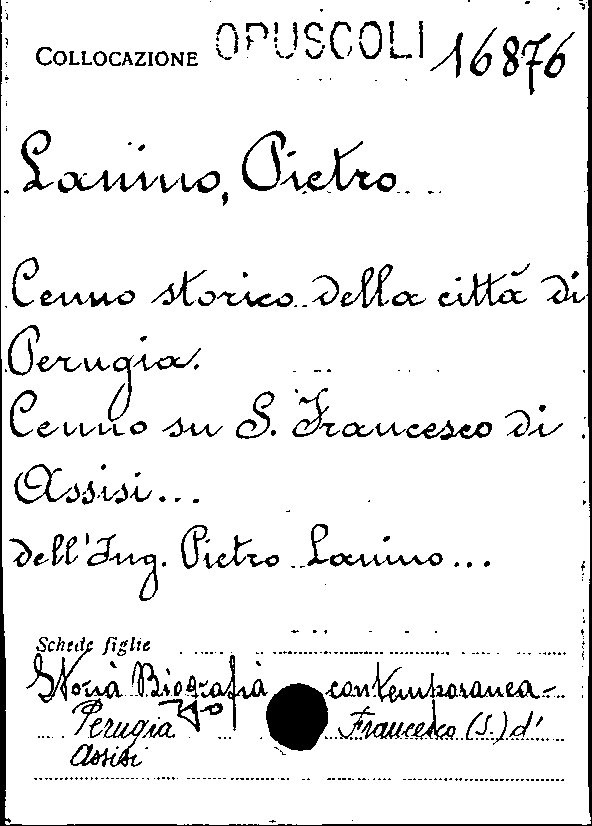 COLLOCAZIONE OPUSCOLI 16876
Lanino, Pietro
Cenno storico della città di
Perugia.
Cenno su S. Francesco di
Assisi...
dell'Ing. Pietro Lanino...
Schede figlie
Storia Biografia contemporanea-
Perugia Francesco (S.) d'
Assisi